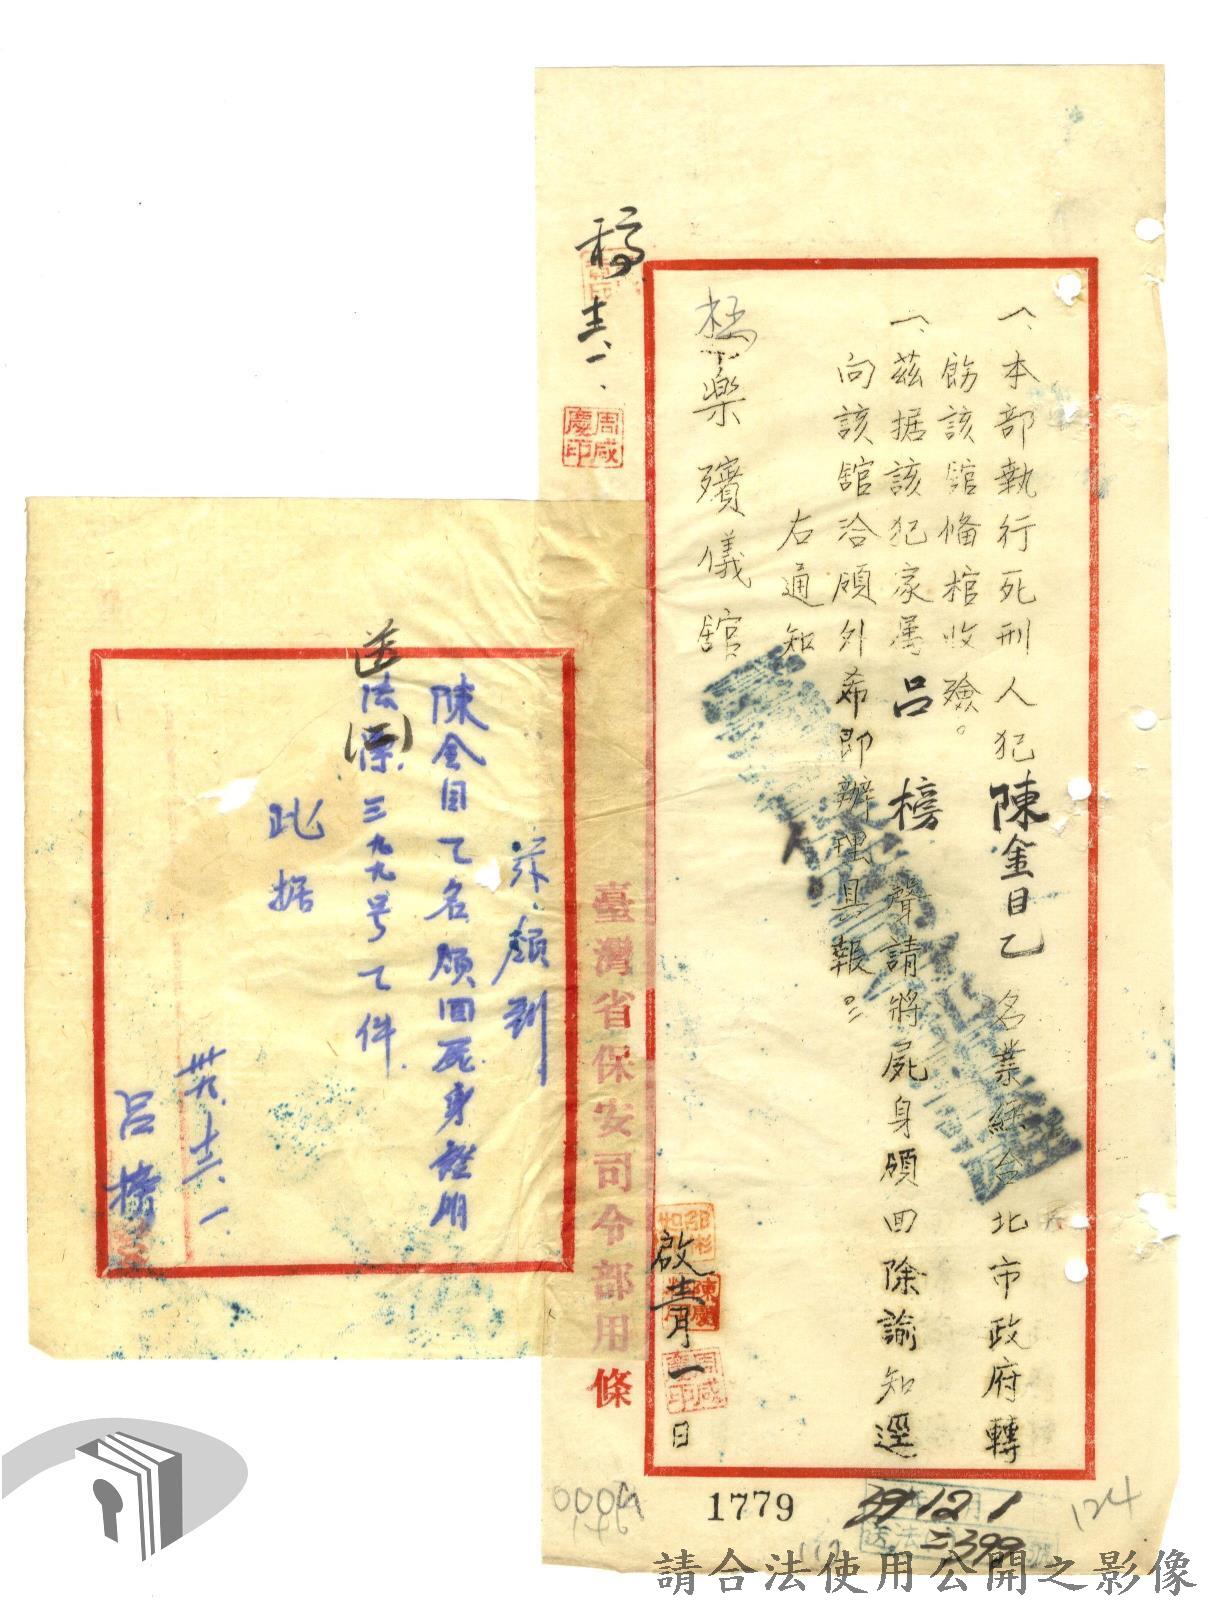 稿
周咸慶印
一、本部執行死刑人犯陳金目乙名業經台北市政府轉
飭該舘俻棺收殮。
一、茲据該犯家屬呂榜聲請將屍身領回除諭知逕
向該舘洽領外希即辦理具報。
右通知
極樂殯儀舘
啟
月一日
周咸慶印
臺灣省保安司令部用條
茲領到
陳金目乙名領回屍身證明
送法(二)字三九九号乙件
此据
卅九、十二、一
呂榜
1779
39 12 1
二399
124
請合法使用公開之影像